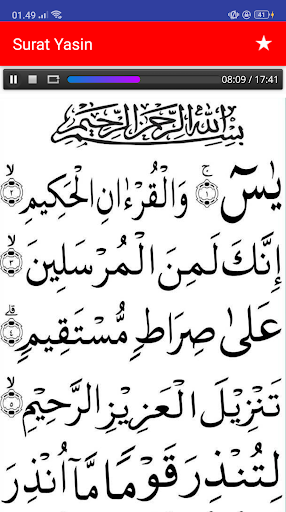 01.49
Surat Yasin
08:09 / 17:41
بِسْمِ اللهِ الرَّحْمٰنِ الرَّحِيْمِ
يٰسٓ ۚ ۝١ وَالْقُرْءَانِ الْحَكِيْمِ ۙ ۝٢
إِنَّكَ لَمِنَ الْمُرْسَلِيْنَ ۙ ۝٣
عَلىٰ صِرَاطٍ مُّسْتَقِيْمٍ ۗ ۝٤
تَنْزِيْلَ الْعَزِيْزِ الرَّحِيْمِ ۙ ۝٥
لِتُنْذِرَ قَوْمًا مَّآ اُنْذِرَ